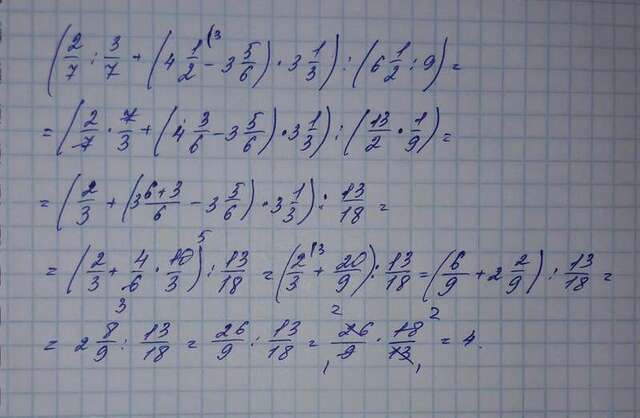 (2/7 : 3/7 + (4 1/2 - 3 5/6) · 3 1/3) : (6 1/2 : 9) =
= (2/7 · 7/3 + (4 3/6 - 3 5/6) · 3 1/3) : (13/2 · 1/9) =
= (2/3 + (3 6+3/6 - 3 5/6) · 3 1/3) : 13/18 =
= (2/3 + 4/6 · 10/3) : 13/18 = (2/3 + 20/9) : 13/18 = (6/9 + 2 2/9) : 13/18 =
= 2 8/9 : 13/18 = 26/9 : 13/18 = 26/9 · 18/13 = 4.